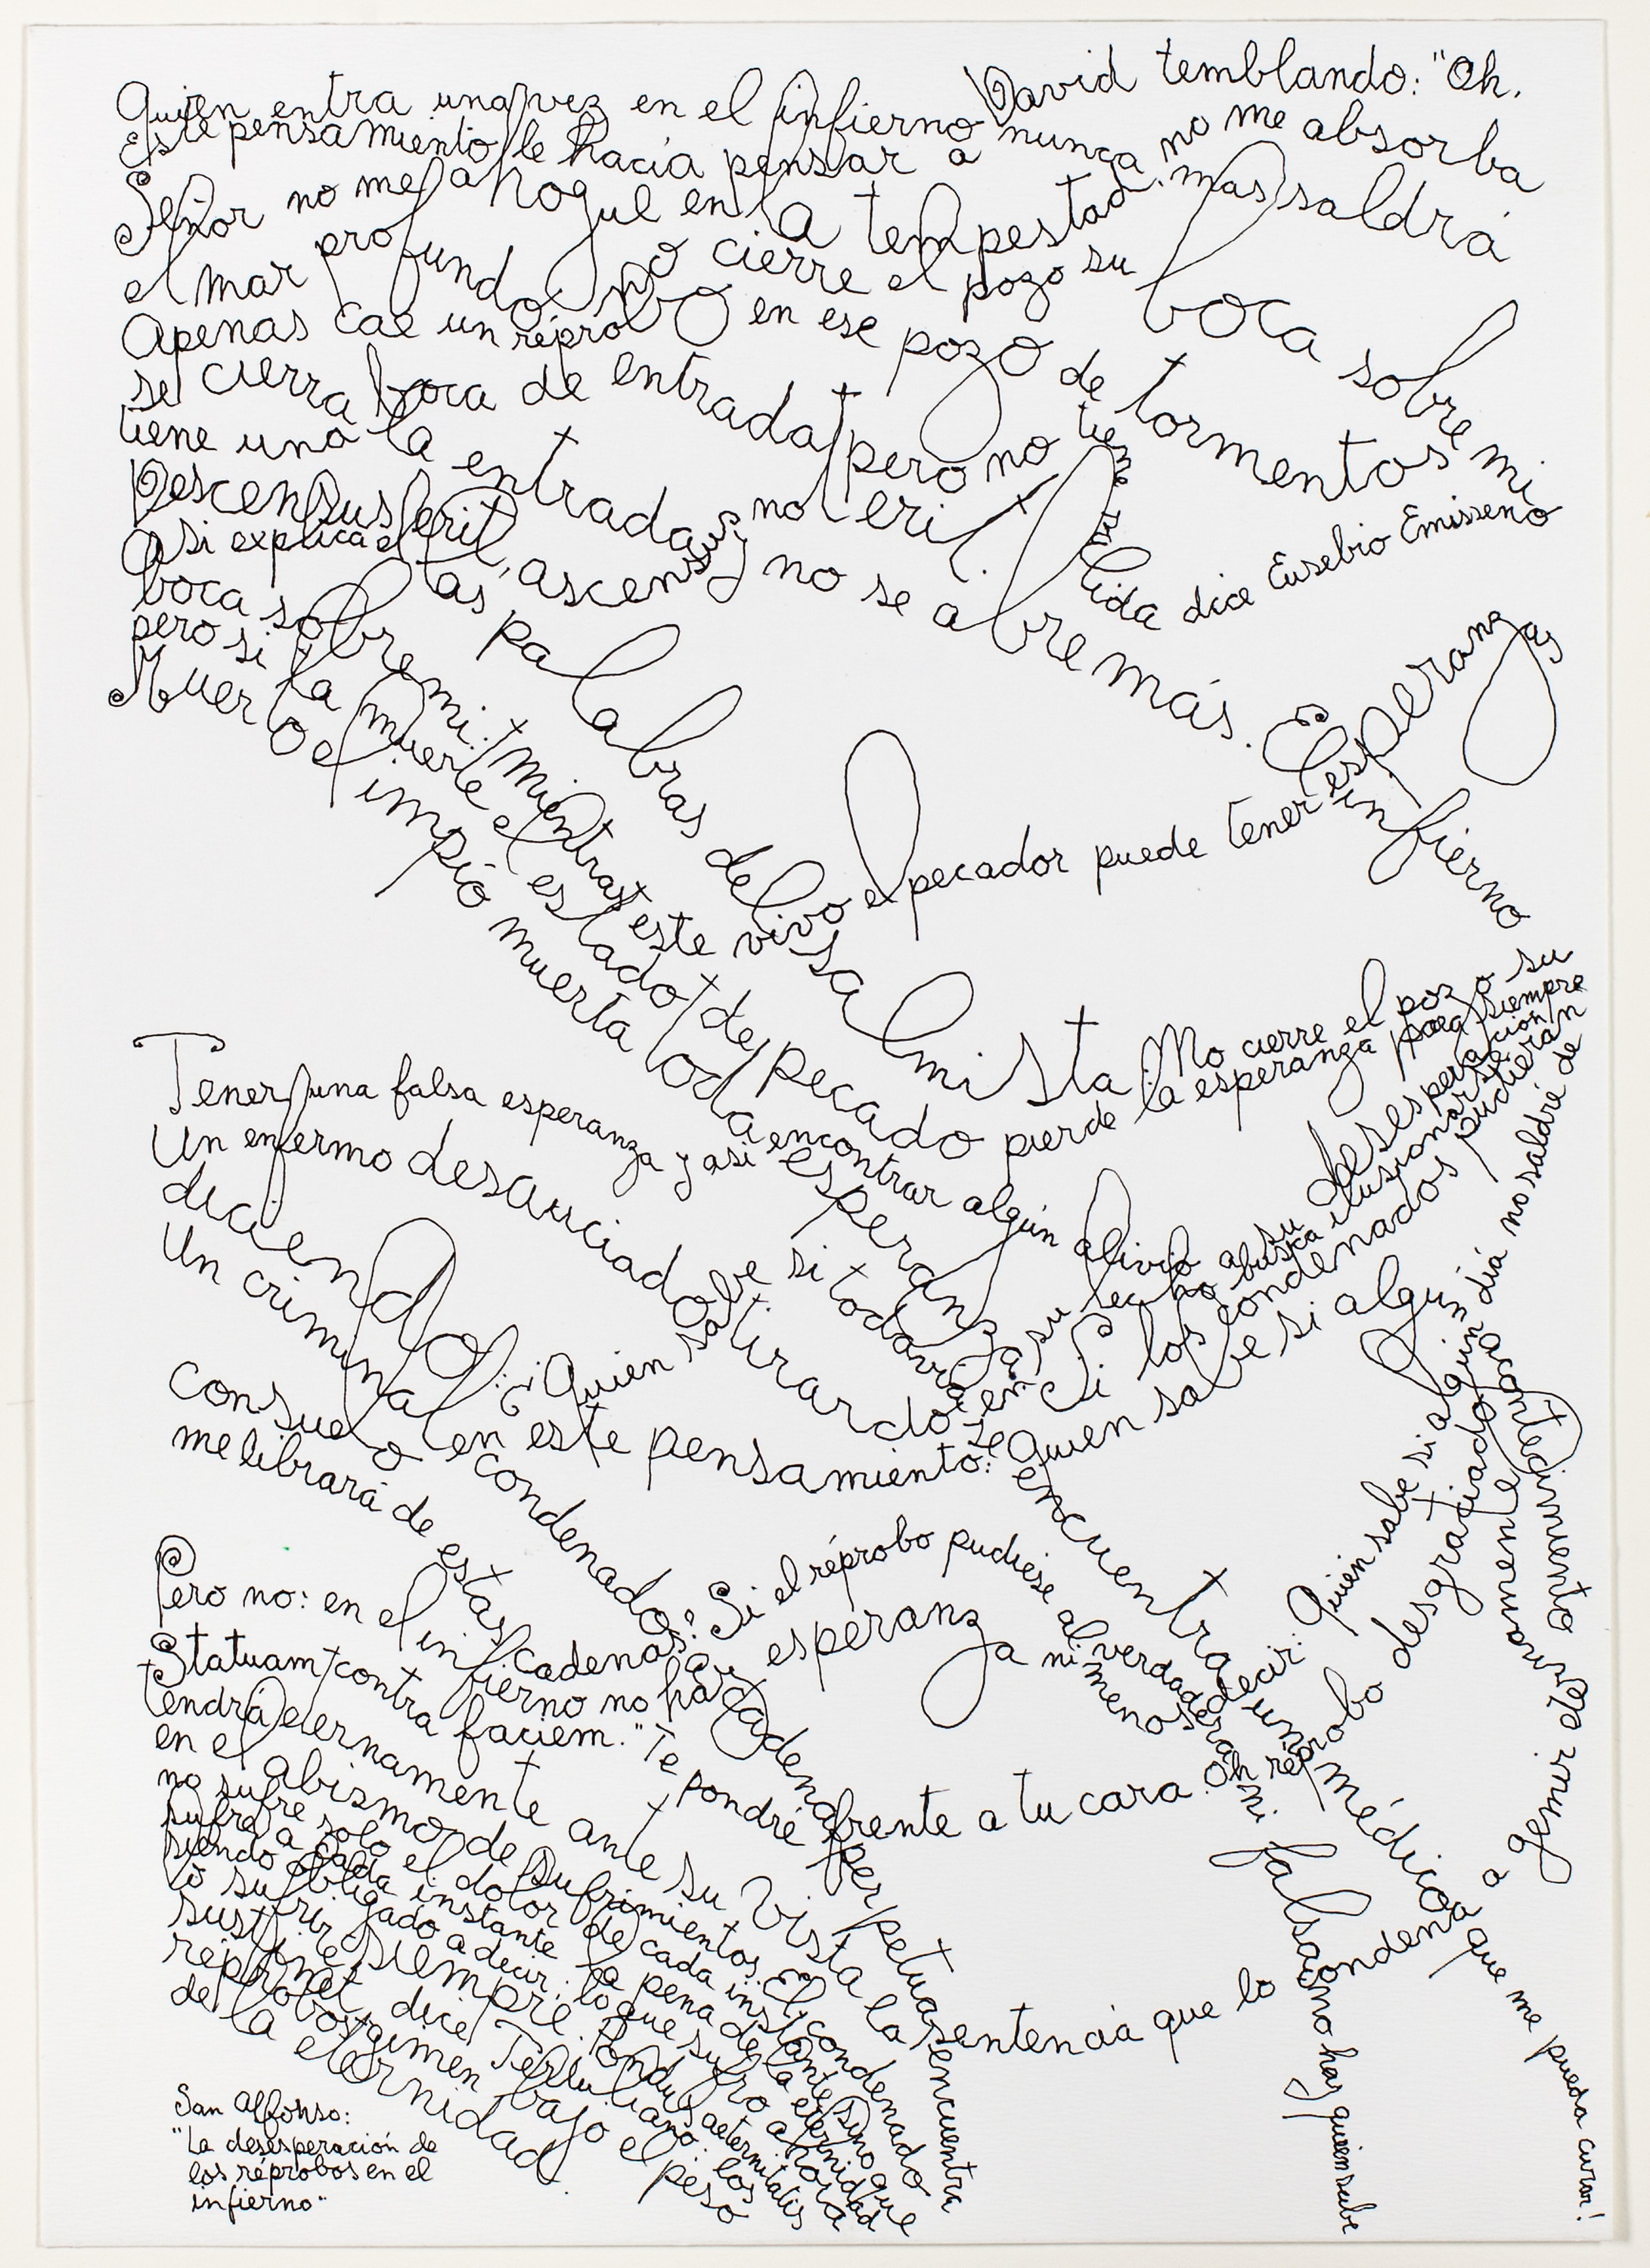 Quien entra una vez en el infierno nunca más saldrá
Este pensamiento le hacía pensar a David temblando: "Oh,
Señor no me ahogue en la tempestad. no me absorba
el mar profundo no cierre el pozo su boca sobre mi
Apenas cae un réprobo en ese pozo de tormentos
se cierra la entrada y no se abre más. El infierno
tiene una boca de entrada pero no tiene salida dice Eusebio Emisseno
Descensus erit, ascensus no erit.
Asi explica el las palabras del salmista: No cierre el pozo su
boca sobre mi. Mientras este vivo el pecador puede tener esperanzas
pero si la muerte el es lado de pecado pierde la esperanza para siempre
Muerto el impío muerta toda esperanza. Si los condenados pudieran
Tener una falsa esperanza y asi encontrar algún alivio a su desesperación
Un enfermo desauciado tirado en su lecho busca ilusionarse
diciendo: ¿Quien sabe si todavía se encuentra un médico que me pueda curar!
Un criminal condenado a cadena perpetua encuentra
consuelo en este pensamiento: Quien sabe si algún día no saldré de
me librará de estas cadenas! Si el réprobo pudiese al menos decir: Quien sabe si algún acontecimiento
Pero no: en el infierno no hay esperanza ni verdadera ni falsa no hay quien sabe
Statuam contra faciem." Te pondré frente a tu cara. Oh réprobo desgraciado
tendrá eternamente ante su vista la sentencia que lo condena a gemir
en el abismo de sufrimientos. El condenado
no sufre solo el dolor de cada instante sino que
sufre a cada instante la pena de la eternidad
siendo obligado a decir: lo que sufro ahora
lo sufriré siempre. Pondus aeternitatis
sustinet, dice Tertuliano: los
réprobos gimen bajo el peso
de la eternidad.
San Alfonso:
"La desesperación de
los réprobos en el
infierno"